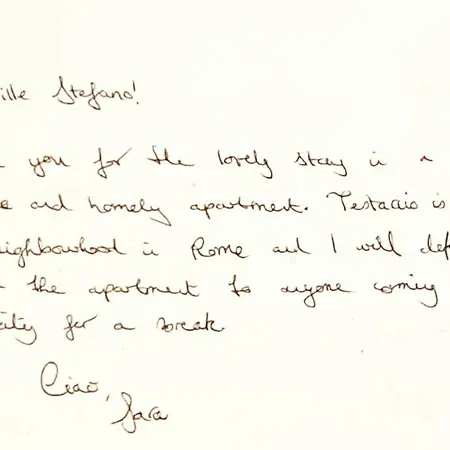 ille Stefano!
you for the lovely stay in a
e and homely apartment. Testaccio is
eighbourhood in Rome and I will def
the apartment to anyone coming
city for a break
Ciao,
Sara